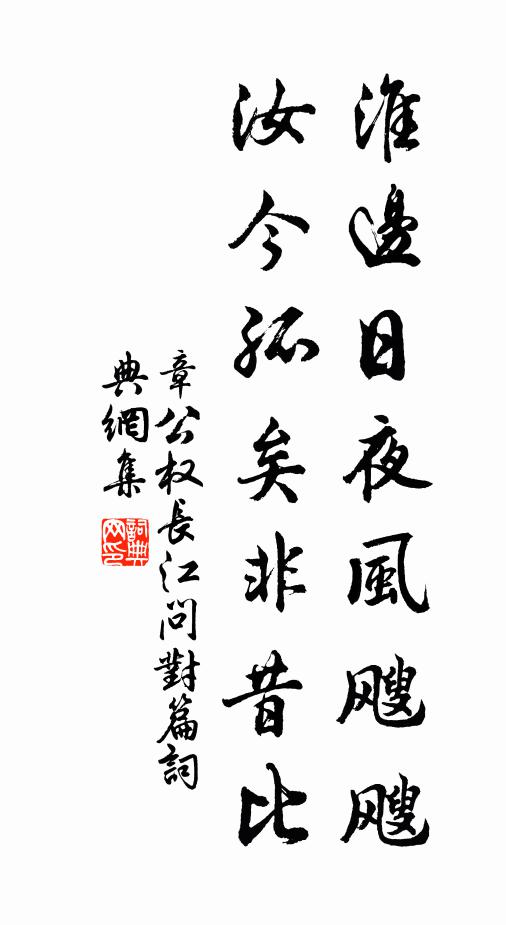 淮邊日夜風颼颼
汝今孤矣非昔比
章公权長江問對篇詞
典網集
詞典網印